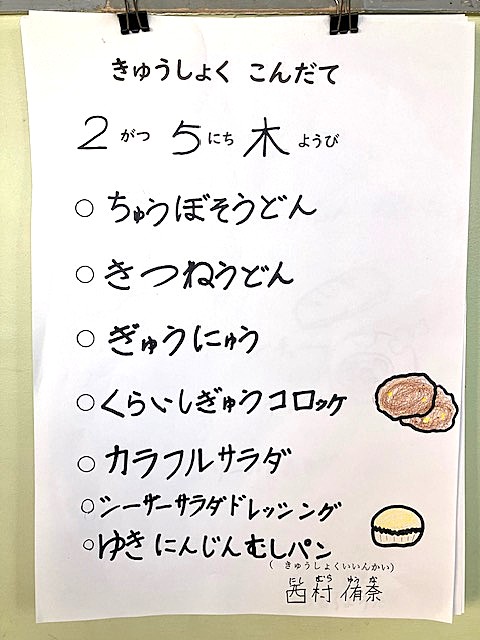 きゅうしょく こんだて
2 がつ 5 にち 木 ようび
○ ちゅうぼそうどん
○ きつねうどん
○ ぎゅうにゅう
○ くらいしぎゅうコロッケ
○ カラフルサラダ
○ シーザーサラダドレッシング
○ ゆきにんじんむしパン
(きゅうしょくいいんかい)
にし むら ゆう な
西村 侑奈